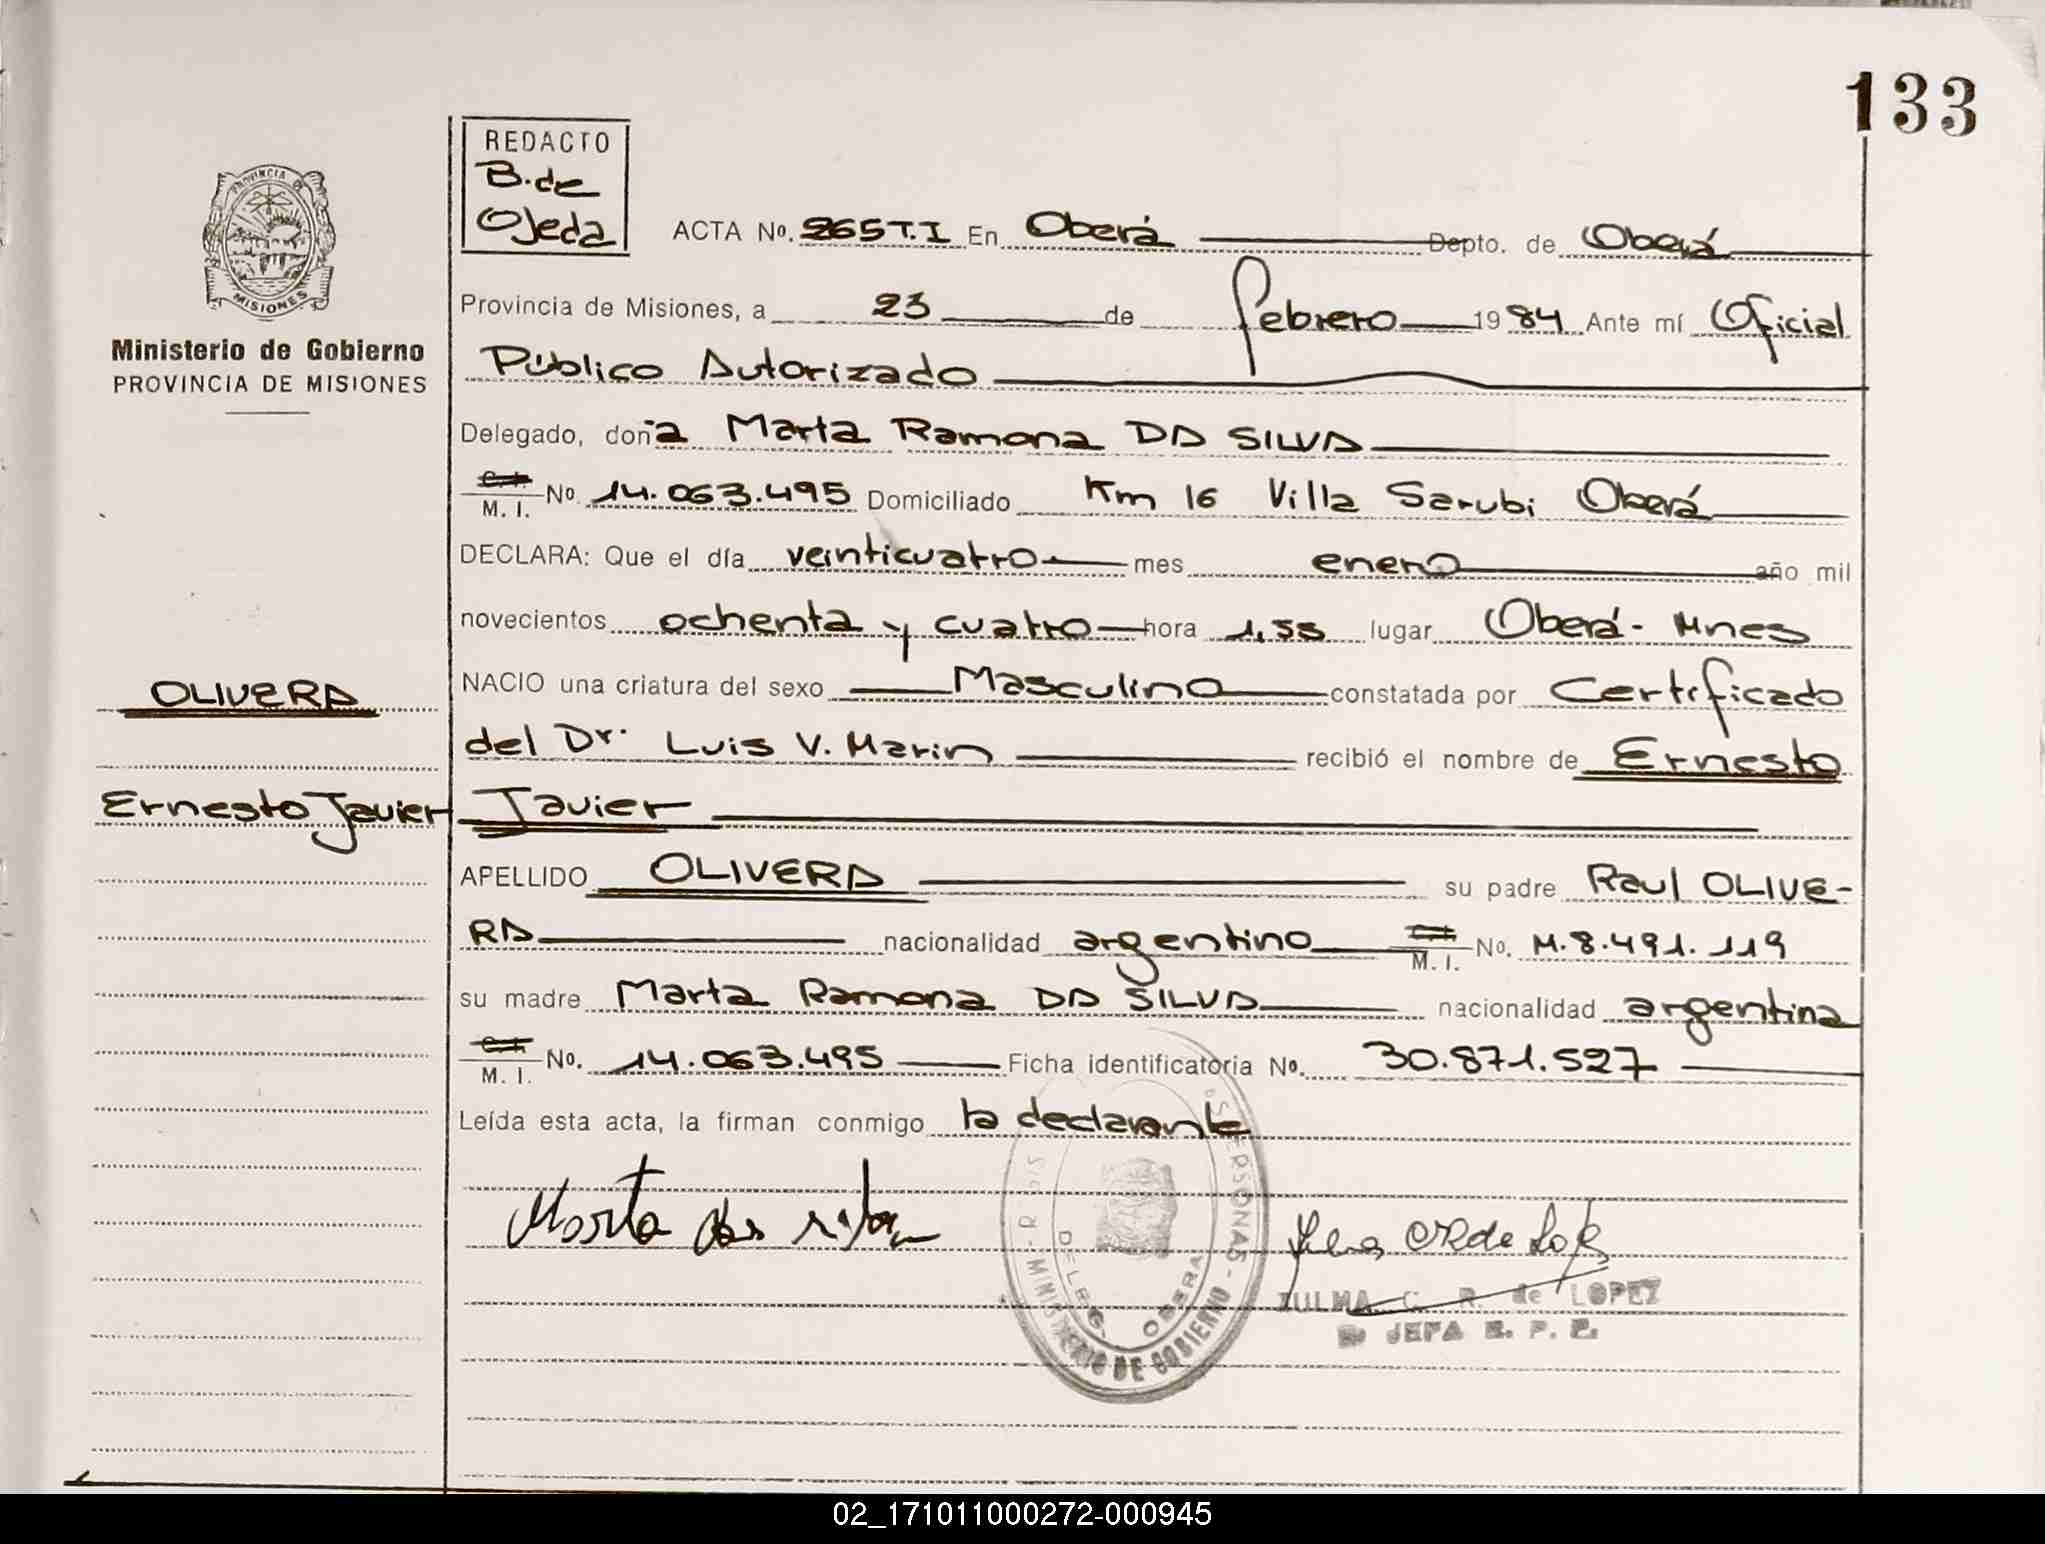 133
REDACTO
B. de
Ojeda
PROVINCIA DE
MISIONES
Ministerio de Gobierno
PROVINCIA DE MISIONES
ACTA No. 265 T.I En Oberá Depto. de Oberá
Provincia de Misiones, a 23 de febrero 1984 Ante mí Oficial
Público Autorizado
Delegado, doña Marta Ramona DA SILVA
C.I. M. I. No. 14.063.495 Domiciliado Km 16 Villa Sarubi Oberá
DECLARA: Que el día veinticuatro mes enero año mil
novecientos ochenta y cuatro hora 1,55 lugar Oberá - Mnes
NACIO una criatura del sexo Masculino constatada por Certificado
del Dr. Luis V. Marin recibió el nombre de Ernesto
Javier
OLIVERA
Ernesto Javier
APELLIDO OLIVERA su padre Raul OLIVE-
RA nacionalidad argentino C.I. M. I. No. M.8.491.119
su madre Marta Ramona DA SILVA nacionalidad argentina
C.I. M. I. No. 14.063.495 Ficha identificatoria No. 30.871.527
Leída esta acta, la firman conmigo la declarante
Marta da silva
PERSONAS - MINISTERIO DE GOBIERNO
DELEG. OBERA
ZULMA C. R. de LOPEZ
JEFA
02_171011000272-000945